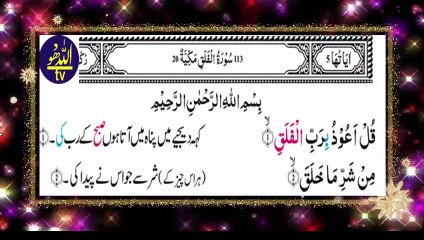 اللہ ھو
tv
اٰیَاتُهَا ٥
113 سُوْرَةُ الْفَلَقِ مَكِّيَّةٌ 20
بِسْمِ اللهِ الرَّحْمٰنِ الرَّحِيْمِ
قُلْ اَعُوْذُ بِرَبِّ الْفَلَقِ ۙ کہہ دیجیے میں پناہ میں آتا ہوں صبح کے رب کی۔
مِنْ شَرِّ مَا خَلَقَ ۙ (ہر اس چیز کے) شر سے جو اس نے پیدا کی۔